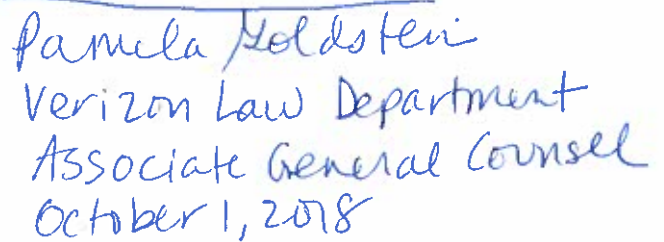 Pamela Goldstein
Verizon Law Department
Associate General Counsel
October 1, 2018